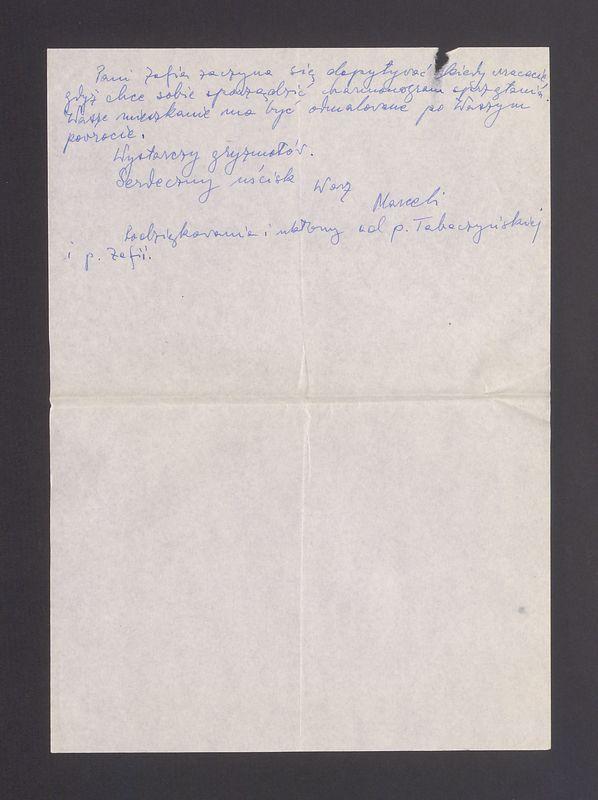 Pani Zofia zaczyna się dopytywać kiedy wracacie
gdyż chce sobie sporządzić harmonogram sprzątania.
Wasze mieszkanie ma być odmalowane po Waszym
powrocie.
Wystarczy gryzmołów.
Serdeczny uścisk Wasz
Marceli
Podziękowania i ukłony od p. Tabaczyńskiej
i p. Zofii.